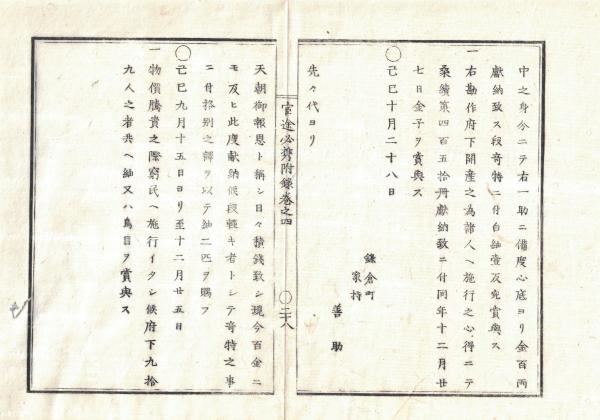 中之身分ニテ右一助ニ備度心底ヨリ金百両
献納致ス段奇特ニ付白紬壹反宛賞典ス
一右勘作府下開産之為諸人ヘ施行之心得ニテ
桑績第四百五拾冊献納致ニ付同年十二月廿
七日金子ヲ賞典ス
〇己巳十月二十八日
鎌倉町
家持
善助
先々代ヨリ
官途必携附録巻之四
〇二十八
天朝御報恩ト称シ日々積銭致シ現今百金ニ
モ及ヒ此度献納候段軽キ者トシテ奇特之事
ニ付格別之譯ヲ以テ紬二匹ヲ賜フ
〇己巳九月十五日ヨリ至十二月廿五日
一物價騰貴之際窮民ヘ施行イタシ候府下九拾
九人之者共ヘ紬又ハ鳥目ヲ賞典ス